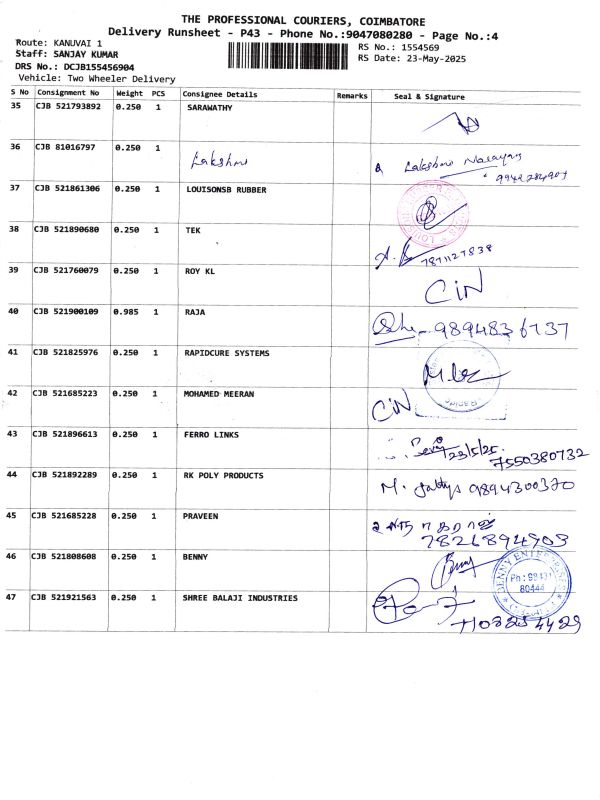 THE PROFESSIONAL COURIERS, COIMBATORE
Delivery Runsheet - P43 - Phone No.:9047080280 - Page No.:4
Route: KANUVAI 1
Staff: SANJAY KUMAR
DRS No.: DCJB155456904
Vehicle: Two Wheeler Delivery
RS No.: 1554569
RS Date: 23-May-2025
S No Consignment No Weight PCS Consignee Details Remarks Seal & Signature
35 CJB 521793892 0.250 1 SARAWATHY
36 CJB 81016797 0.250 1 Lakshmi Lakshmi Narayan
9942284907
37 CJB 521861306 0.250 1 LOUISONSB RUBBER
38 CJB 521890680 0.250 1 TEK 7871127838
39 CJB 521760079 0.250 1 ROY KL CIN
40 CJB 521900109 0.985 1 RAJA 9894836737
41 CJB 521825976 0.250 1 RAPIDCURE SYSTEMS
42 CJB 521685223 0.250 1 MOHAMED MEERAN CIN
43 CJB 521896613 0.250 1 FERRO LINKS 23/5/25.
7550380732
44 CJB 521892289 0.250 1 RK POLY PRODUCTS M. 9894300370
45 CJB 521685228 0.250 1 PRAVEEN
7826894903
46 CJB 521808608 0.250 1 BENNY Benny
BENNY ENTERPRISES
Ph : 98431
80444
47 CJB 521921563 0.250 1 SHREE BALAJI INDUSTRIES